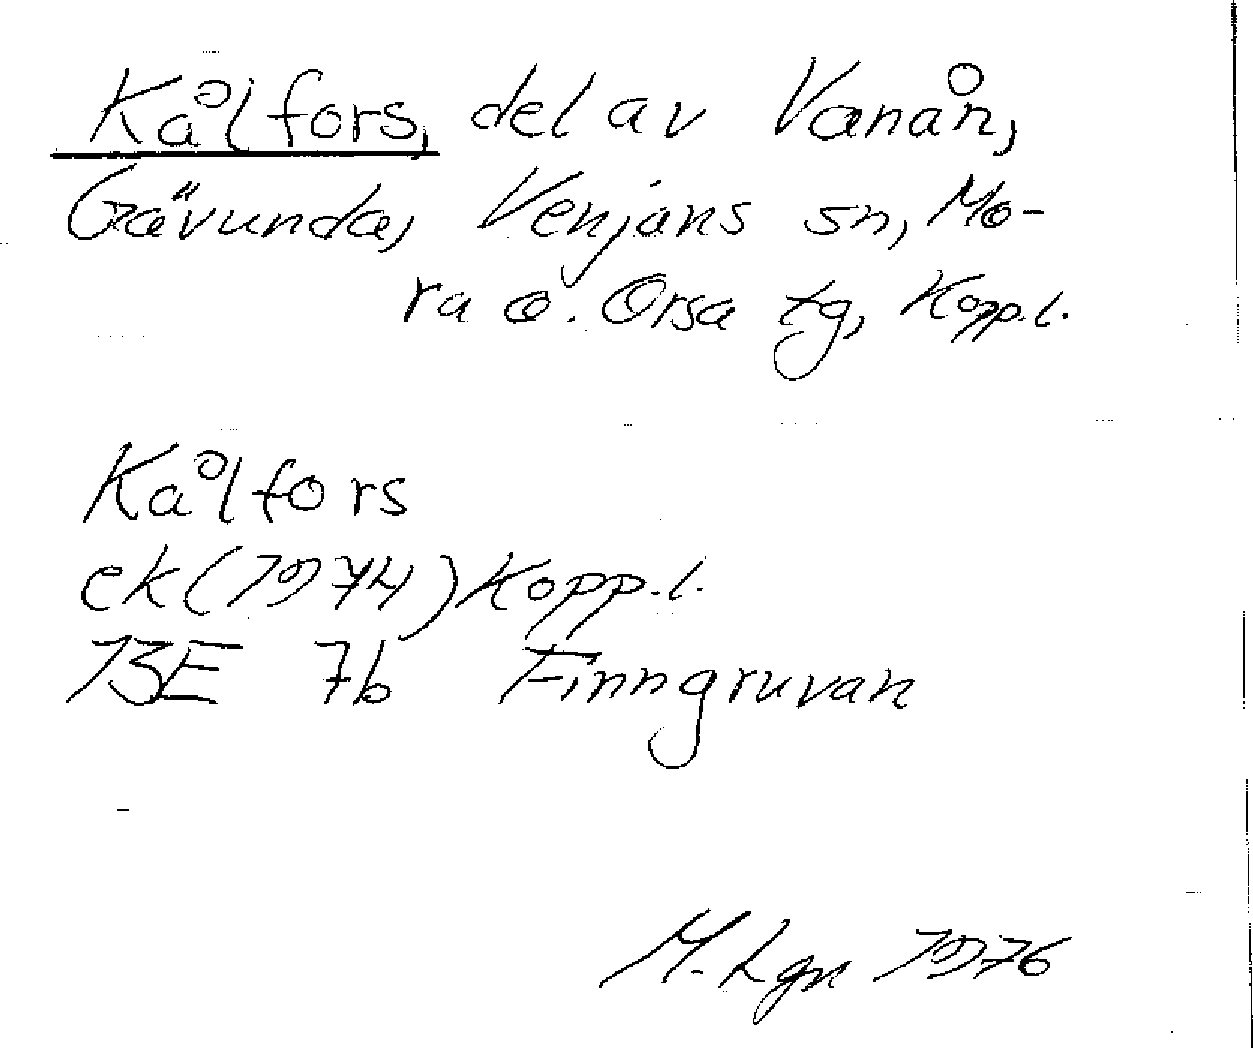 Kålfors, del av Vanån,
Gävunda, Venjans sn, Mo-
ra o. Orsa tg, Kopp.l.
Kålfors
ek (1974) Kopp.l.
13E 7b Finngruvan
M. Lgn 1976